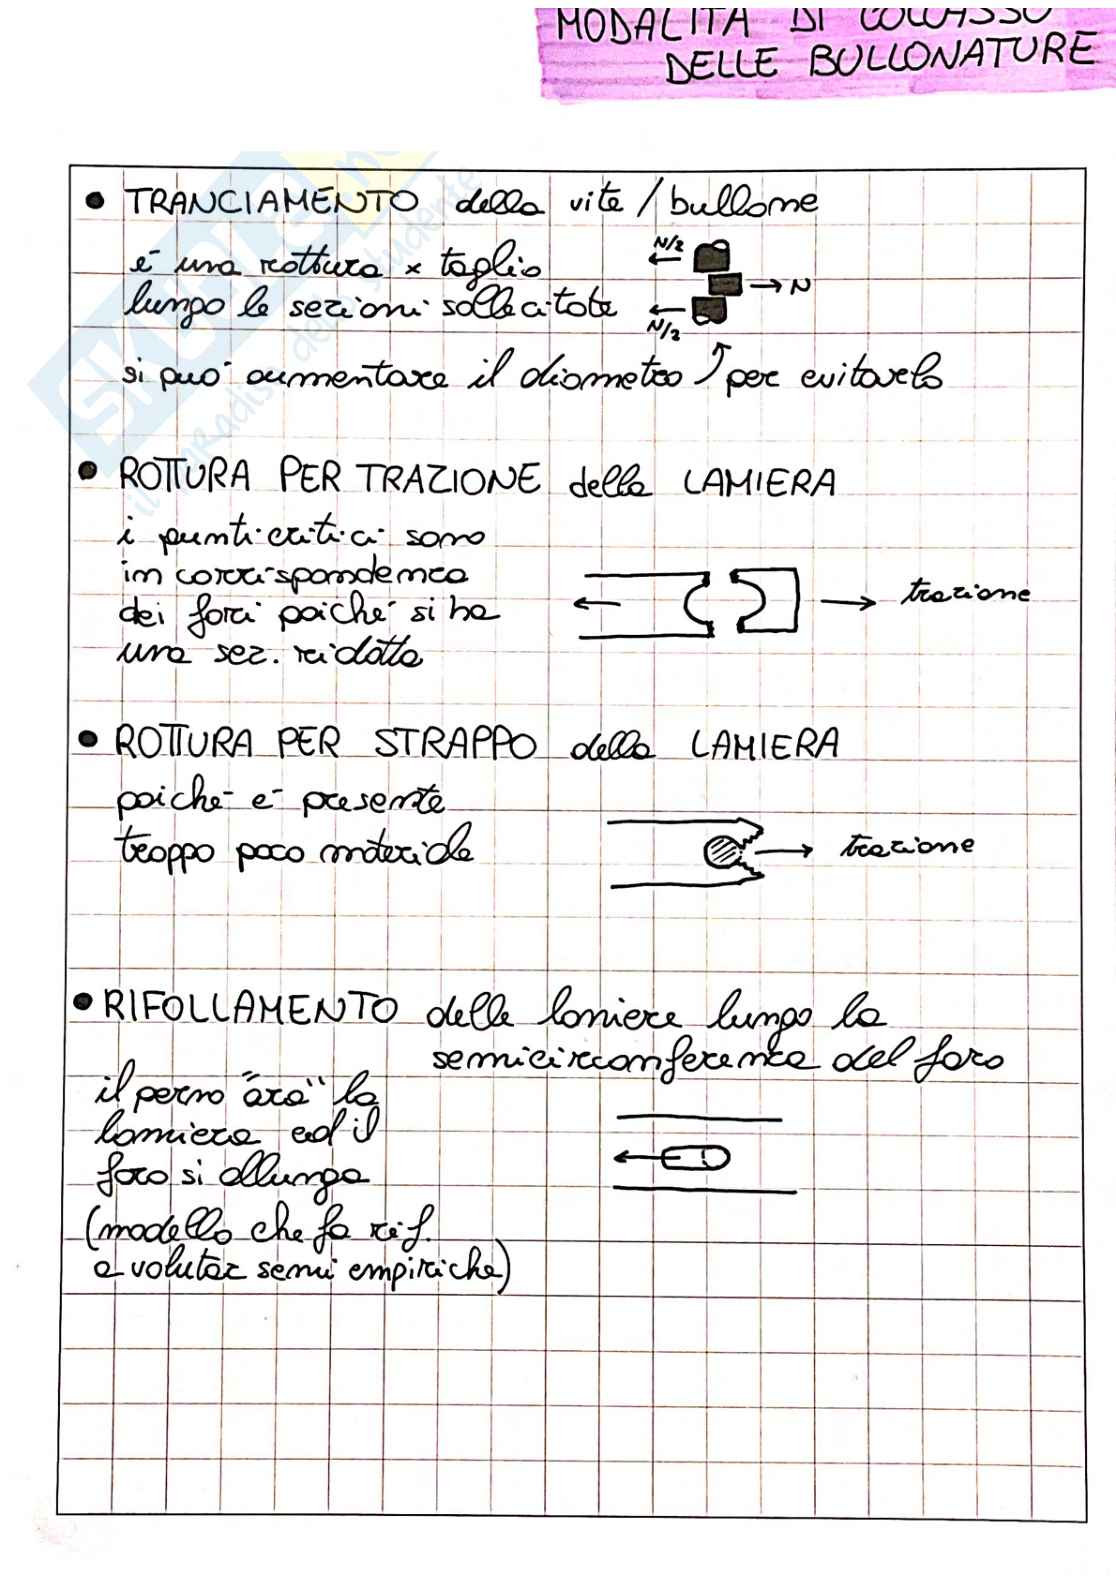 MODALITÀ DI COLLASSO
DELLE BULLONATURE
• TRANCIAMENTO della vite / bullone
è una rottura x taglio
lungo le sezioni sollecitate
N/2
→ N
N/2
si può aumentare il diametro per evitarlo
• ROTTURA PER TRAZIONE della LAMIERA
i punti critici sono
in corrispondenza
dei fori poiché si ha
una sez. ridotta
trazione
• ROTTURA PER STRAPPO della LAMIERA
poiché è presente
troppo poco materiale
trazione
• RIFOLLAMENTO delle lamiere lungo la
semicirconferenza del foro
il perno "ara" la
lamiera ed il
foro si allunga
(modello che fa rif.
a volutaz semi empiriche)